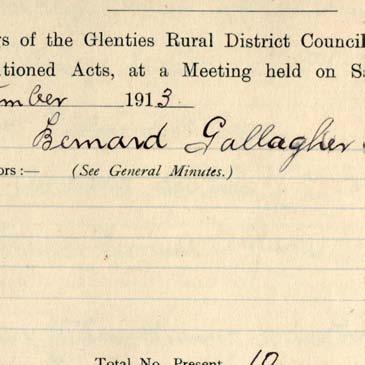 s of the Glenties Rural District Council
tioned Acts, at a Meeting held on S
mber 1913.
Bernard Gallagher
ors:— (See General Minutes.)
Total No. Present 10